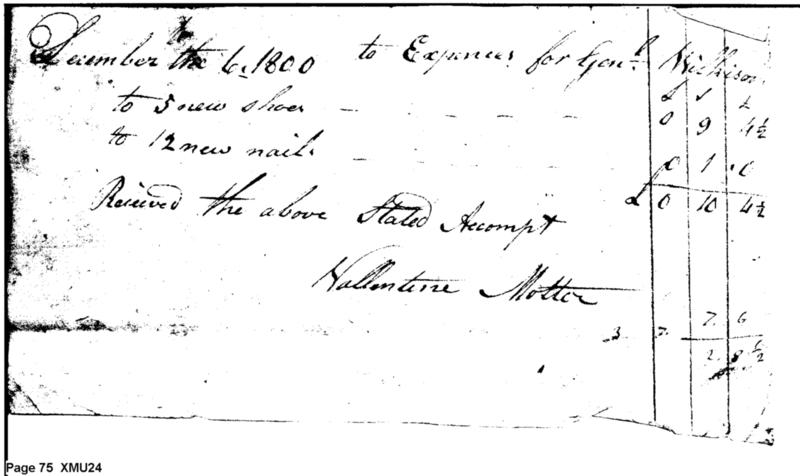 December the 6. 1800 to Expences for Genl.
£ s
to 5 new shoes — — — — 0 9 4½
to 12 new nails — — — — 0 1 0
£ 0 10 4½
Received the above Stated Accompt
Vallentine Motter
3 7 7 6
2 8½
Page 75 XMU24